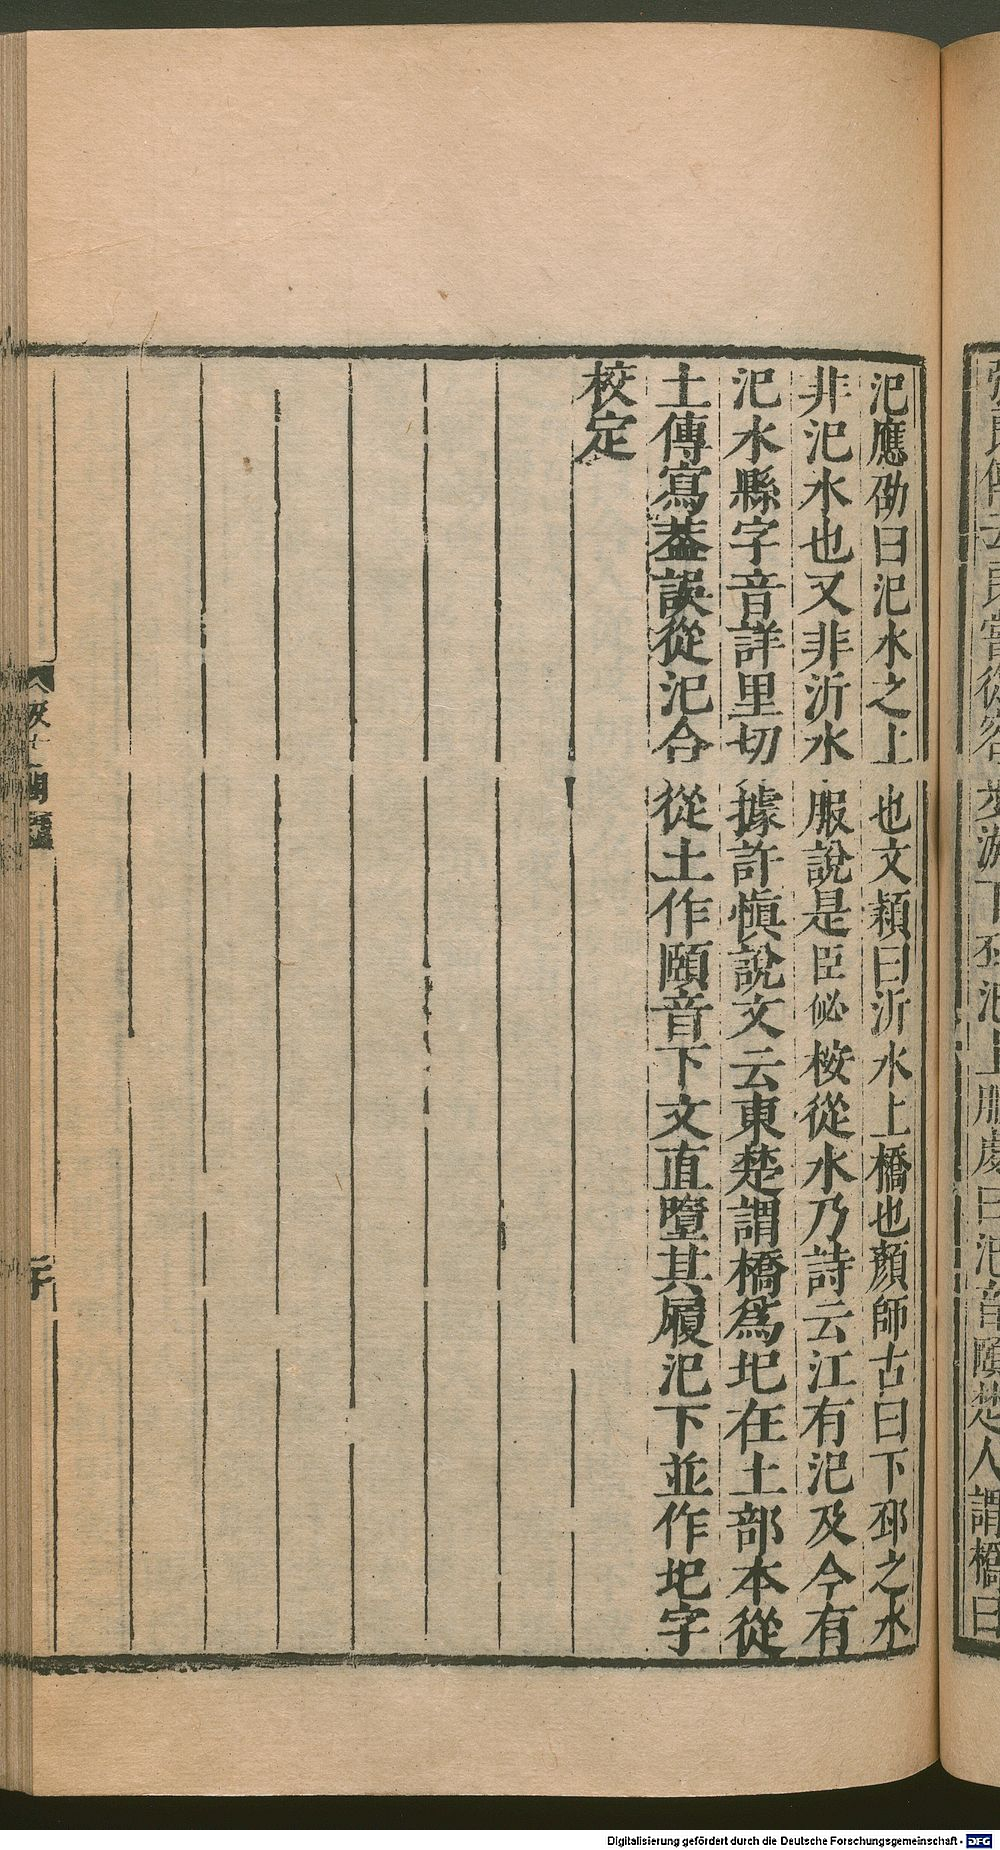 張良傳云良嘗從容步游下邳汜上服虔曰汜音頤楚人謂橋曰
汜應劭曰汜水之上也文穎曰沂水上橋也顏師古曰下邳之水
非汜水也又非沂水服說是臣佖桉從水乃詩云江有汜及今有
汜水縣字音詳里切據許愼說文云東楚謂橋爲圯在土部本從
土傳寫葢誤從汜合從土作頤音下文直墮其履汜下並作圯字
校定
Digitalisierung gefördert durch die Deutsche Forschungsgemeinschaft - DFG